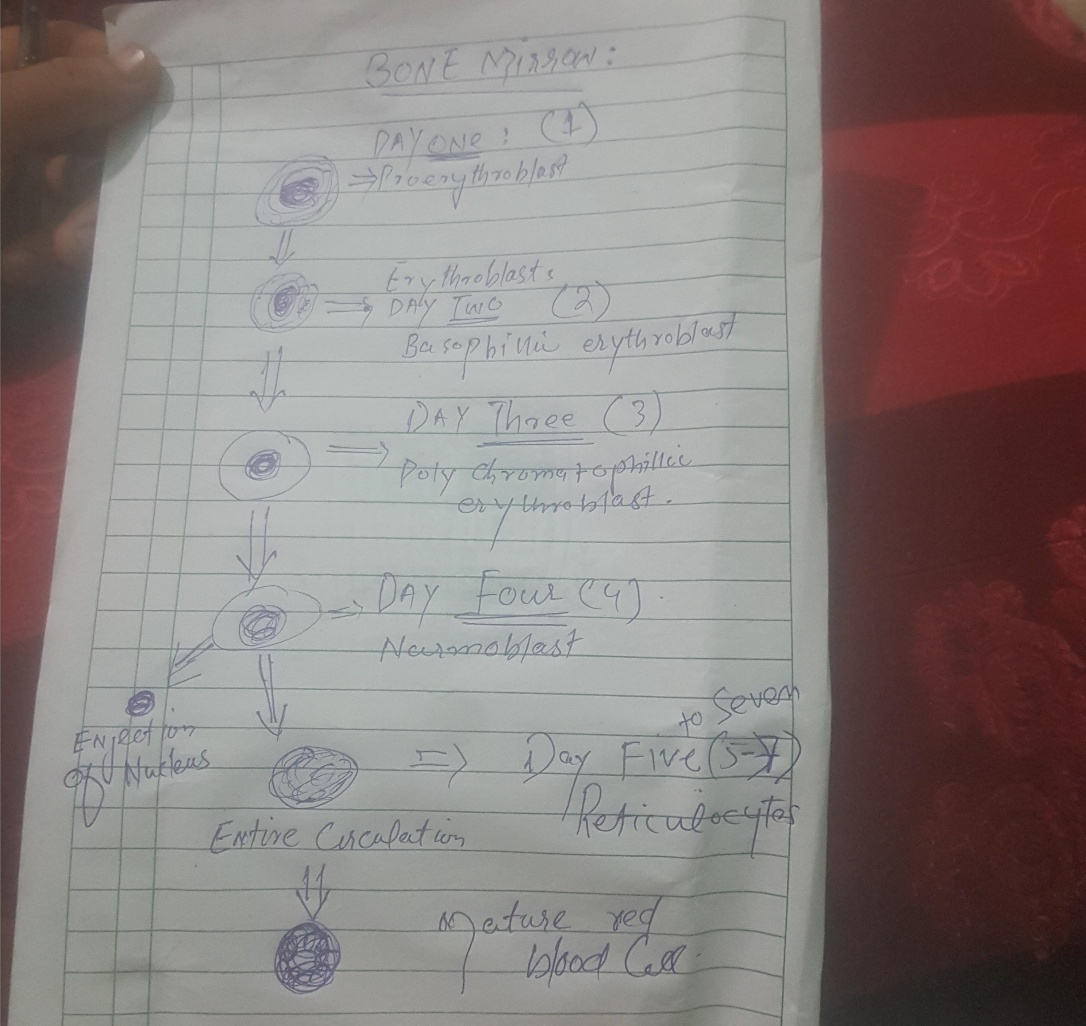 BONE Mirrow:
DAY ONE: (1)
⇒ Proerythroblast
Erythroblast:
⇒ DAY Two (2)
Basophillic erythroblast
DAY Three (3)
⇒ Poly chromatophillic
erythroblast.
⇒ DAY Four (4).
Narmoblast
to Seven
Enjection
of Nucleus
⇒ Day Five (5-7)
Reticulocytes
Entire Circulation
Mature red
blood Cell.